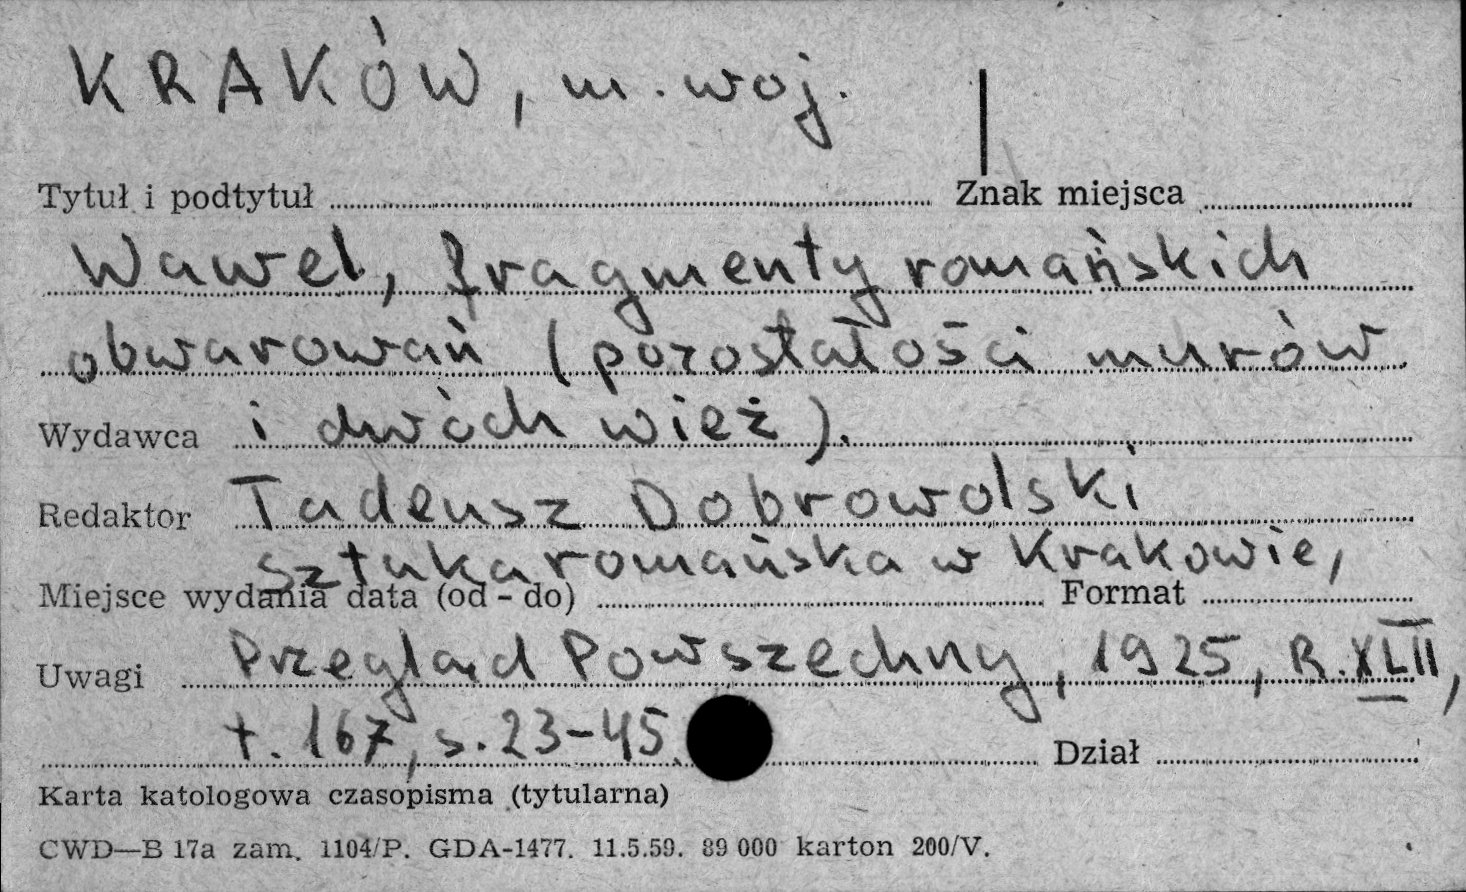 KRAKÓW, m. woj.
Tytuł i podtytuł Znak miejsca
Wawel, fragmenty romańskich
obwarowań (pozostałości murów
Wydawca i dwóch wież).
Redaktor Tadeusz Dobrowolski
Sztuka romańska w Krakowie,
Miejsce wydania data (od - do) Format
Uwagi Przegląd Powszechny, 1925, R. XLII,
t. 167, s. 23-45.
Dział
Karta katologowa czasopisma (tytularna)
CWD—B 17a zam. 1104/P. GDA-1477. 11.5.59. 89 000 karton 200/V.